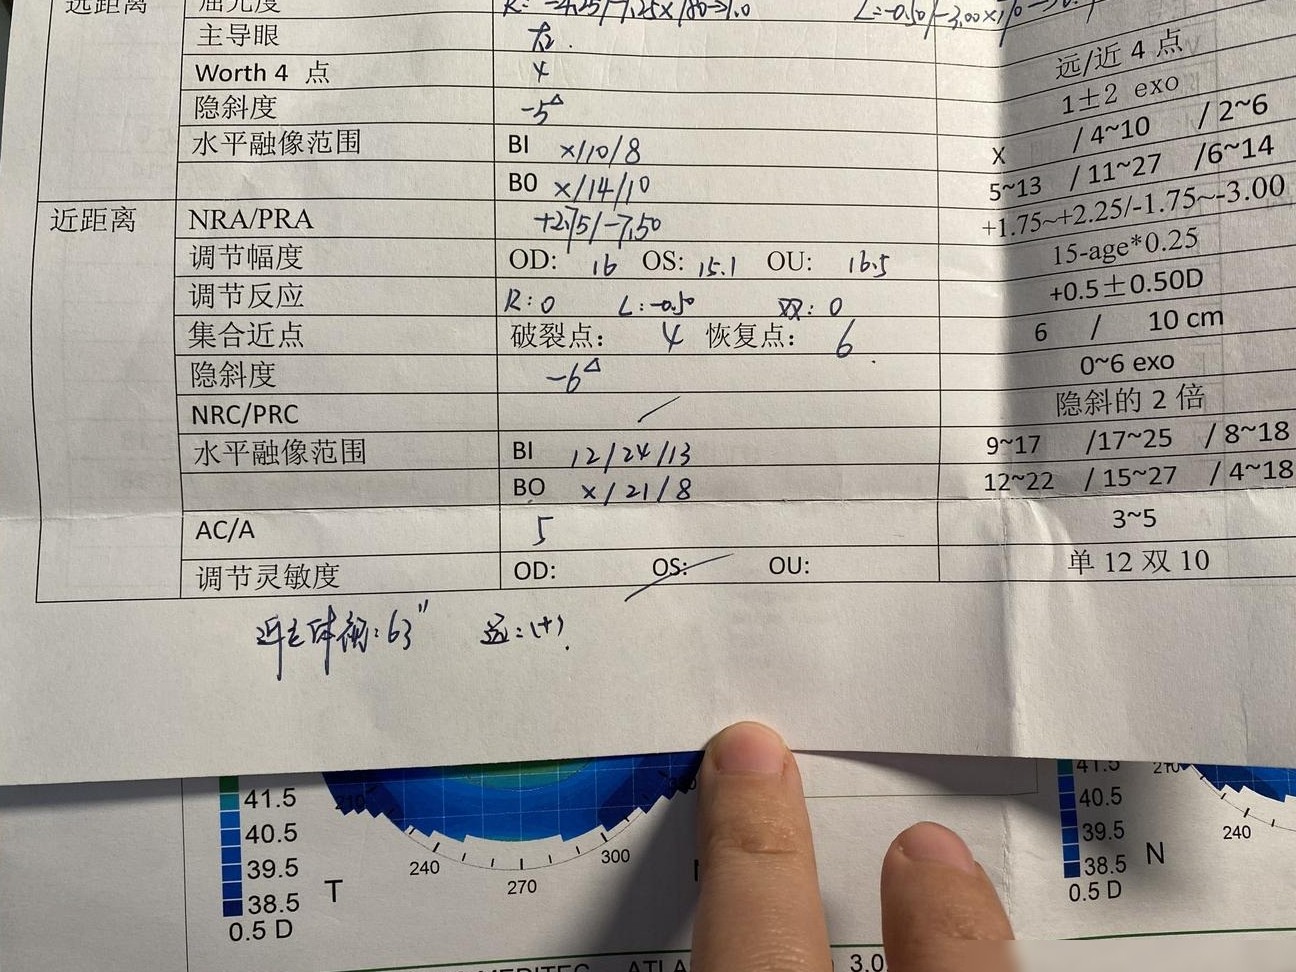 远距离 屈光度 R: -4.25/-1.25×180→1.0 L:-0.50/-3.00×
主导眼 右.
Worth 4 点 4 远/近 4 点
隐斜度 -5△ 1±2 exo
水平融像范围 BI x/10/8 X / 4~10 / 2~6
BO x/14/10 5~13 / 11~27 /6~14
近距离 NRA/PRA +2.75/-7.50 +1.75~+2.25/-1.75~-3.00
调节幅度 OD: 16 OS: 15.1 OU: 16.5 15-age*0.25
调节反应 R:0 L:-0.50 双:0 +0.5±0.50D
集合近点 破裂点: 4 恢复点: 6. 6 / 10 cm
隐斜度 -6△ 0~6 exo
NRC/PRC 隐斜的 2 倍
水平融像范围 BI 12/24/13 9~17 /17~25 / 8~18
BO x/21/8 12~22 / 15~27 / 4~18
AC/A 5 3~5
调节灵敏度 OD: OS: OU: 单 12 双 10
近立体视:63" 远:(+).
41.5 210 41.5 210
40.5 40.5
39.5 240 300 39.5 240
38.5 270 38.5
T N
0.5 D 0.5 D
ATLA 3.0